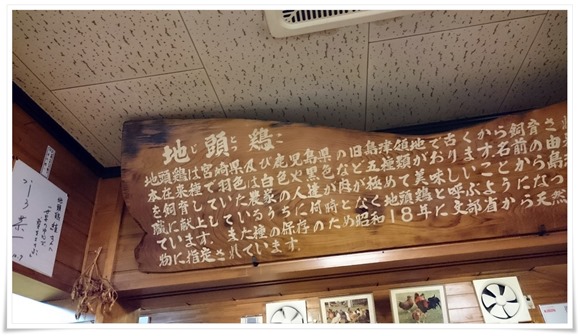 地頭鶏
地頭鶏は宮崎県及び鹿児島県の旧島津領地で古くから飼育され
本在来種で羽色は白色や黒色など五種類がおります。名前の由来
を飼育していた農家の人達が肉が極めて美味しいことから島津
職に献上しているうちに何時となく地頭鶏と呼ぶようになっ
ています。また種の保存のため昭和18年に文部省から天然
物に指定されています。
地頭鶏